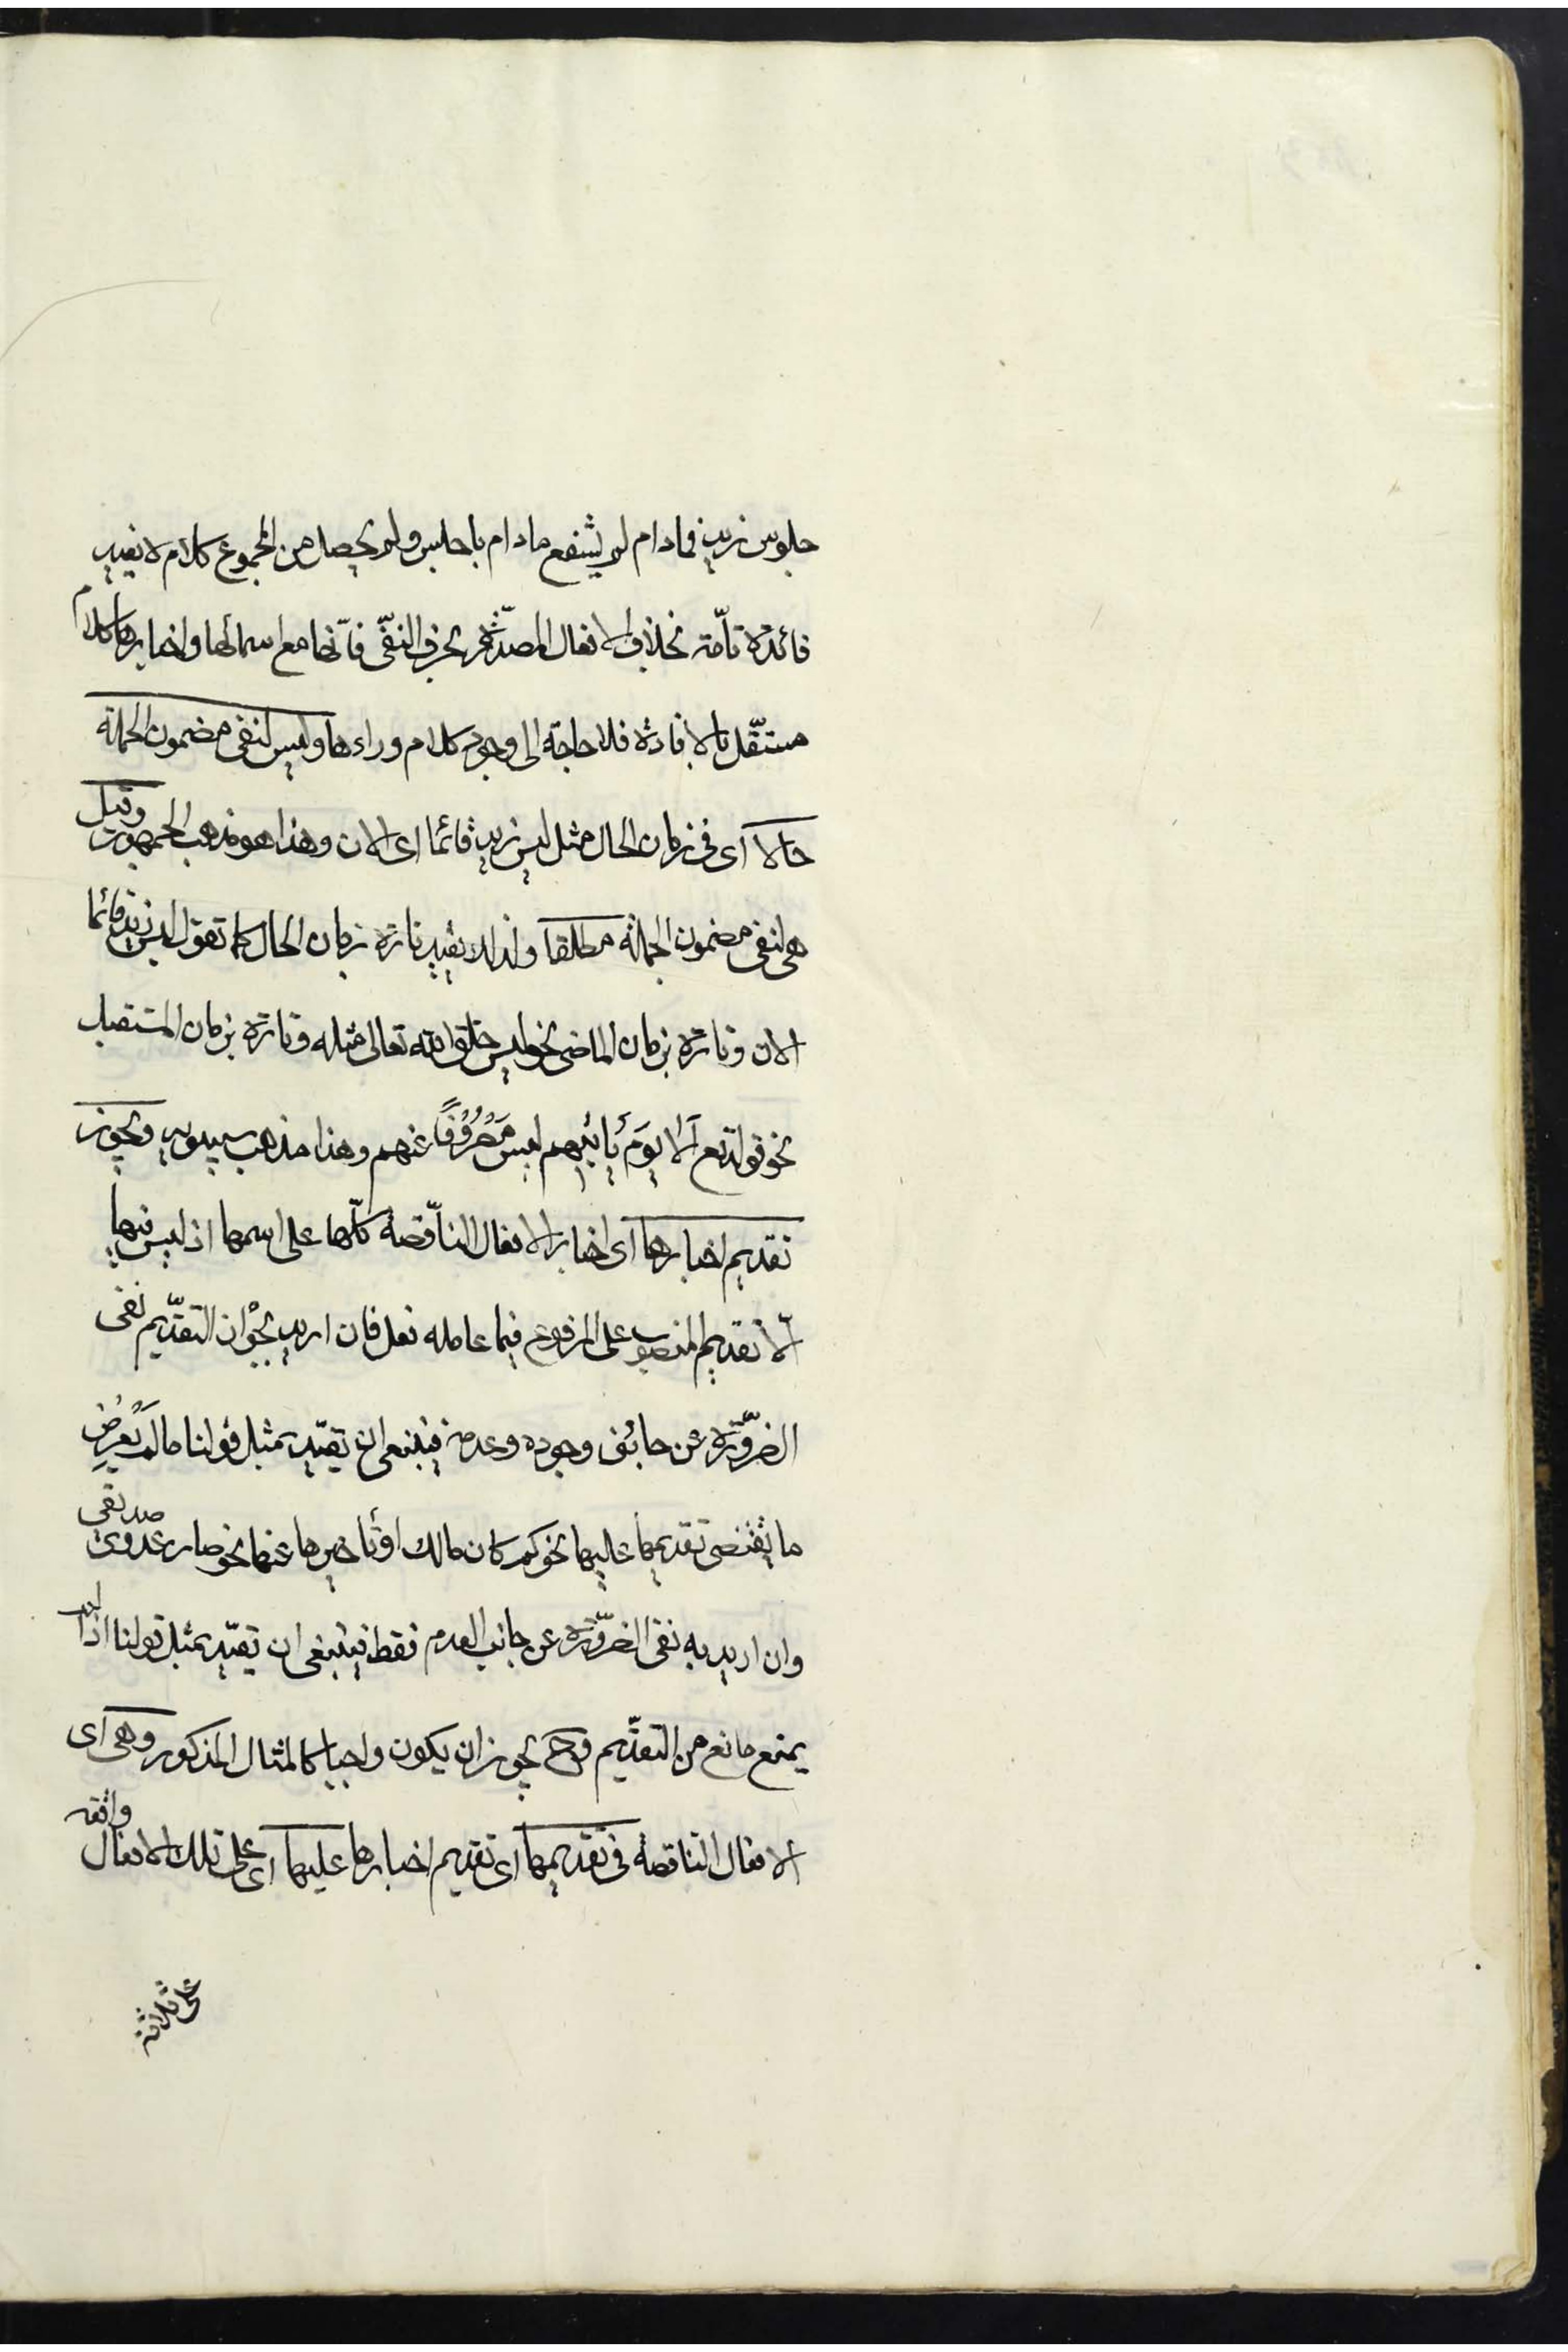 جلوس زيد فمادام لم يشفع مادام باجلس ولم يحصل من المجموع كلام لا يفيد
فائدة تامّة بخلاف الافعال المصدّرة بحرف النفّى فانّها مع اسمائها واخبارها كلام
مستقّل بالافادة فلا حاجة الى وجود كلام وراءها وليس لنفى مضمون الجملة
حالا اى فى زمان الحال مثل ليس زيد قائما اى الان وهذا هو مذهب الجمهور وقيل
هى لنفى مضمون الجملة مطلقا ولذلك يقيد تارة زمان الحال كما تقول ليس زيد قائما
الان وتارة بزمان الماضى نحو ليس خلق الله تعالى مثله وتارة بزمان المستقبل
نحو قوله تع اَلا يَوَمَ يأتيهم ليس مَصْرُوُفًا عنهم وهذا مذهب سيبويه ويجوز
تقديم اخبارها اى اخبار الافعال الناّقصة كلّها على اسمها اذ ليس فيها
الّا تقديم المنصوب على المرفوع فيما عامله فعل فان اريد بجواز التقدّيم نفى
الضرّورة عن جانب وجوده وعدمه فينبغى ان يقيّد بمثل قولنا ما لم يَعْرِضُ
ما يقتضى تقديمها عليها نحو كم كان مالك او تأخيرها عنها نحو صار عدوى صديقى
وان اريد به نفى الضرّورة عن جانب العدم فقط فينبغى ان يقيّد بمثل قولنا اذا لم
يمنع مانع من التقدّيم وح يجوز ان يكون واجبا كالمثال المذكور وهى اى
الافعال الناقصة فى تقديمها اى تقديم اخبارها عليها اى على تلك الافعال واقعة
على ثلاثة